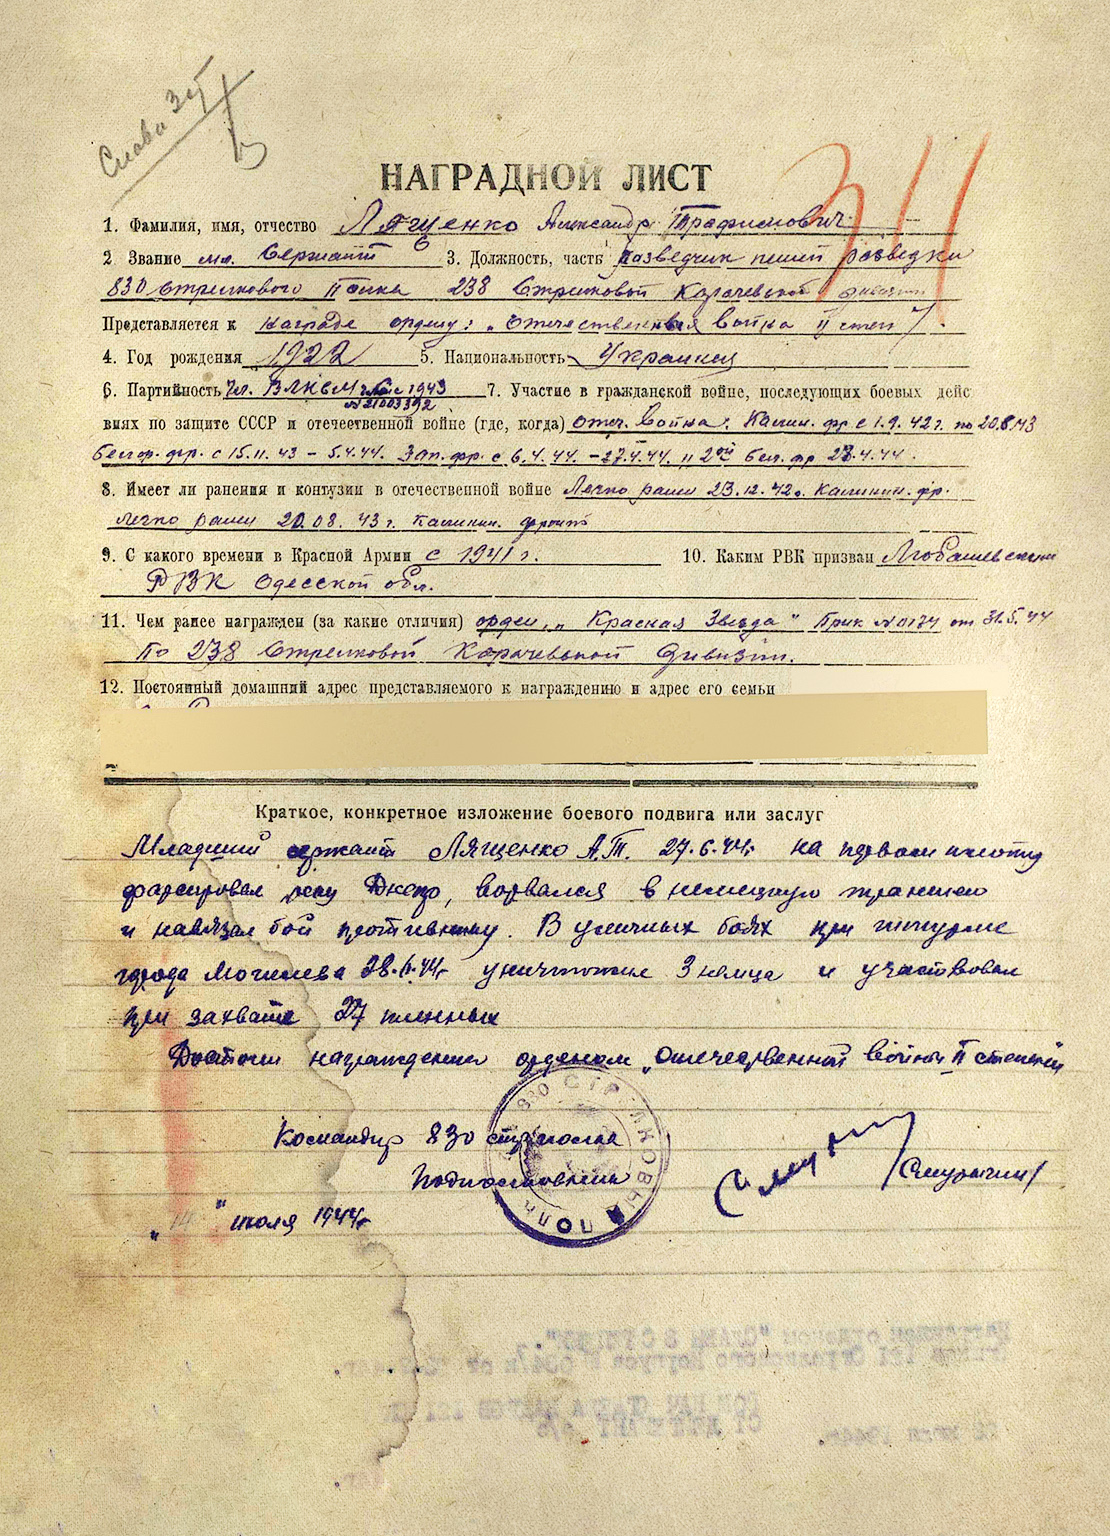 Слава 3 ст
311
НАГРАДНОЙ ЛИСТ
1. Фамилия, имя, отчество Лященко Александр Трафимович
2 Звание мл. Сержант 3. Должность, часть Разведчик пешей разведки
830 Стрелкового Полка 238 Стрелковой Карачевской дивизии
Представляется к награде ордену: „Отечественная война II степ"
4. Год рождения 1922 5. Национальность Украинец
6. Партийность Чл. ВЛКСМ с 1943 7. Участие в гражданской войне, последующих боевых дейс
№21003392
виях по защите СССР и отечественной войне (где, когда) отеч. война: Калин. фр с 1.9.42г. по 20.8.43
белор. фр. с 15.11.43 – 5.4.44. Зап. фр. с 6.4.44. – 27.4.44. и 2ой Бел. фр 28.4.44.
8. Имеет ли ранения и контузии в отечественной войне Легко ранен 23.12.42г. Калинин. фр.
легко ранен 20.08.43 г. Калинин. фронт
9. С какого времени в Красной Армии с 1941 г. 10. Каким РВК призван Любашевским
РВК Одесской обл.
11. Чем ранее награжден (за какие отличия) орден „Красная Звезда" Прик №0174 от 31.5.44
По 238 Стрелковой Карачевской Дивизии.
12. Постоянный домашний адрес представляемого к награждению и адрес его семьи
Краткое, конкретное изложение боевого подвига или заслуг
Младший сержант Лященко А.Т. 27.6.44г на подручном
форсировал реку Днепр, ворвался в немецкую траншею
и навязал бой противнику. В уличных боях при штурме
города Могилева 28.6.44г уничтожил 3 немца и участвовал
при захвате 27 пленных
Достоин награждения орденом „Отечественной войны II степени
Командир 830 стр. полка
Подполковник /Смурыгин/
830 СТРЕЛКОВЫЙ ПОЛК
„14" июля 1944г